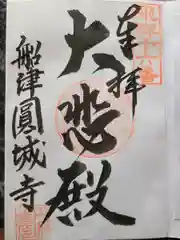 奉拝
大悲殿
船津圓城寺